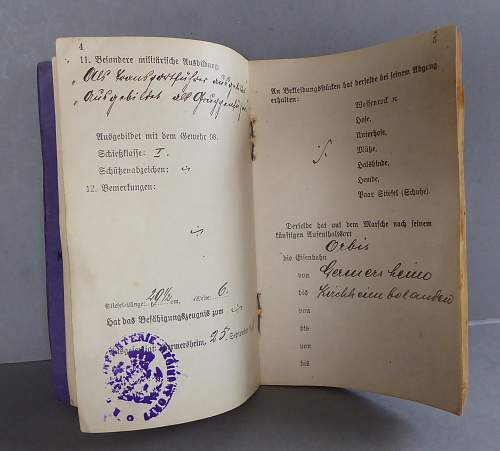 4
11. Besondere militärische Ausbildung
"Als Transportführer ausgebildet"
"Ausgebildet als Gruppenführer"
Ausgebildet mit dem Gewehr 98.
Schießklasse: I.
Schützenabzeichen:
12. Bemerkungen:
Stiefel-Länge: 29½ cm, Weite: 6.
Hat das Befähigungszeugnis zum
Germersheim, 25. September
INFANTERIE
5
An Bekleidungsstücken hat derselbe bei seinem Abgang
erhalten:
Waffenrock
Hose,
Unterhose,
Mütze,
Halsbinde,
Hemde,
Paar Stiefel (Schuhe).
Derselbe hat auf dem Marsche nach seinem
künftigen Aufenthaltsort
Orbis
die Eisenbahn
von Germersheim
bis Kirchheimbolanden
von
bis
von
bis